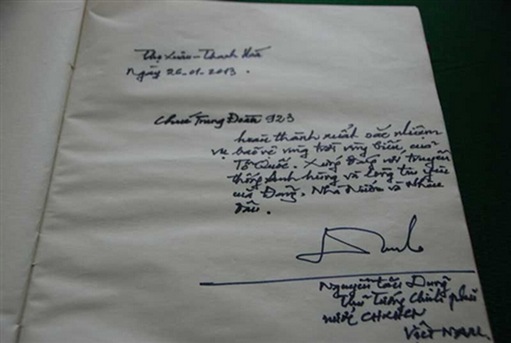 Thọ Xuân - Thanh Hoá
Ngày 26.01.2013.
Chúc Trung Đoàn 923
hoàn thành xuất sắc nhiệm
vụ bảo vệ vùng trời vùng biển của
Tổ Quốc. Xứng đáng với truyền
thống Anh hùng và lòng tin yêu
của Đảng, Nhà Nước và Nhân
dân.
Nguyễn Tấn Dũng
Thủ Tướng Chính phủ
nước CHXHCN
Việt Nam.